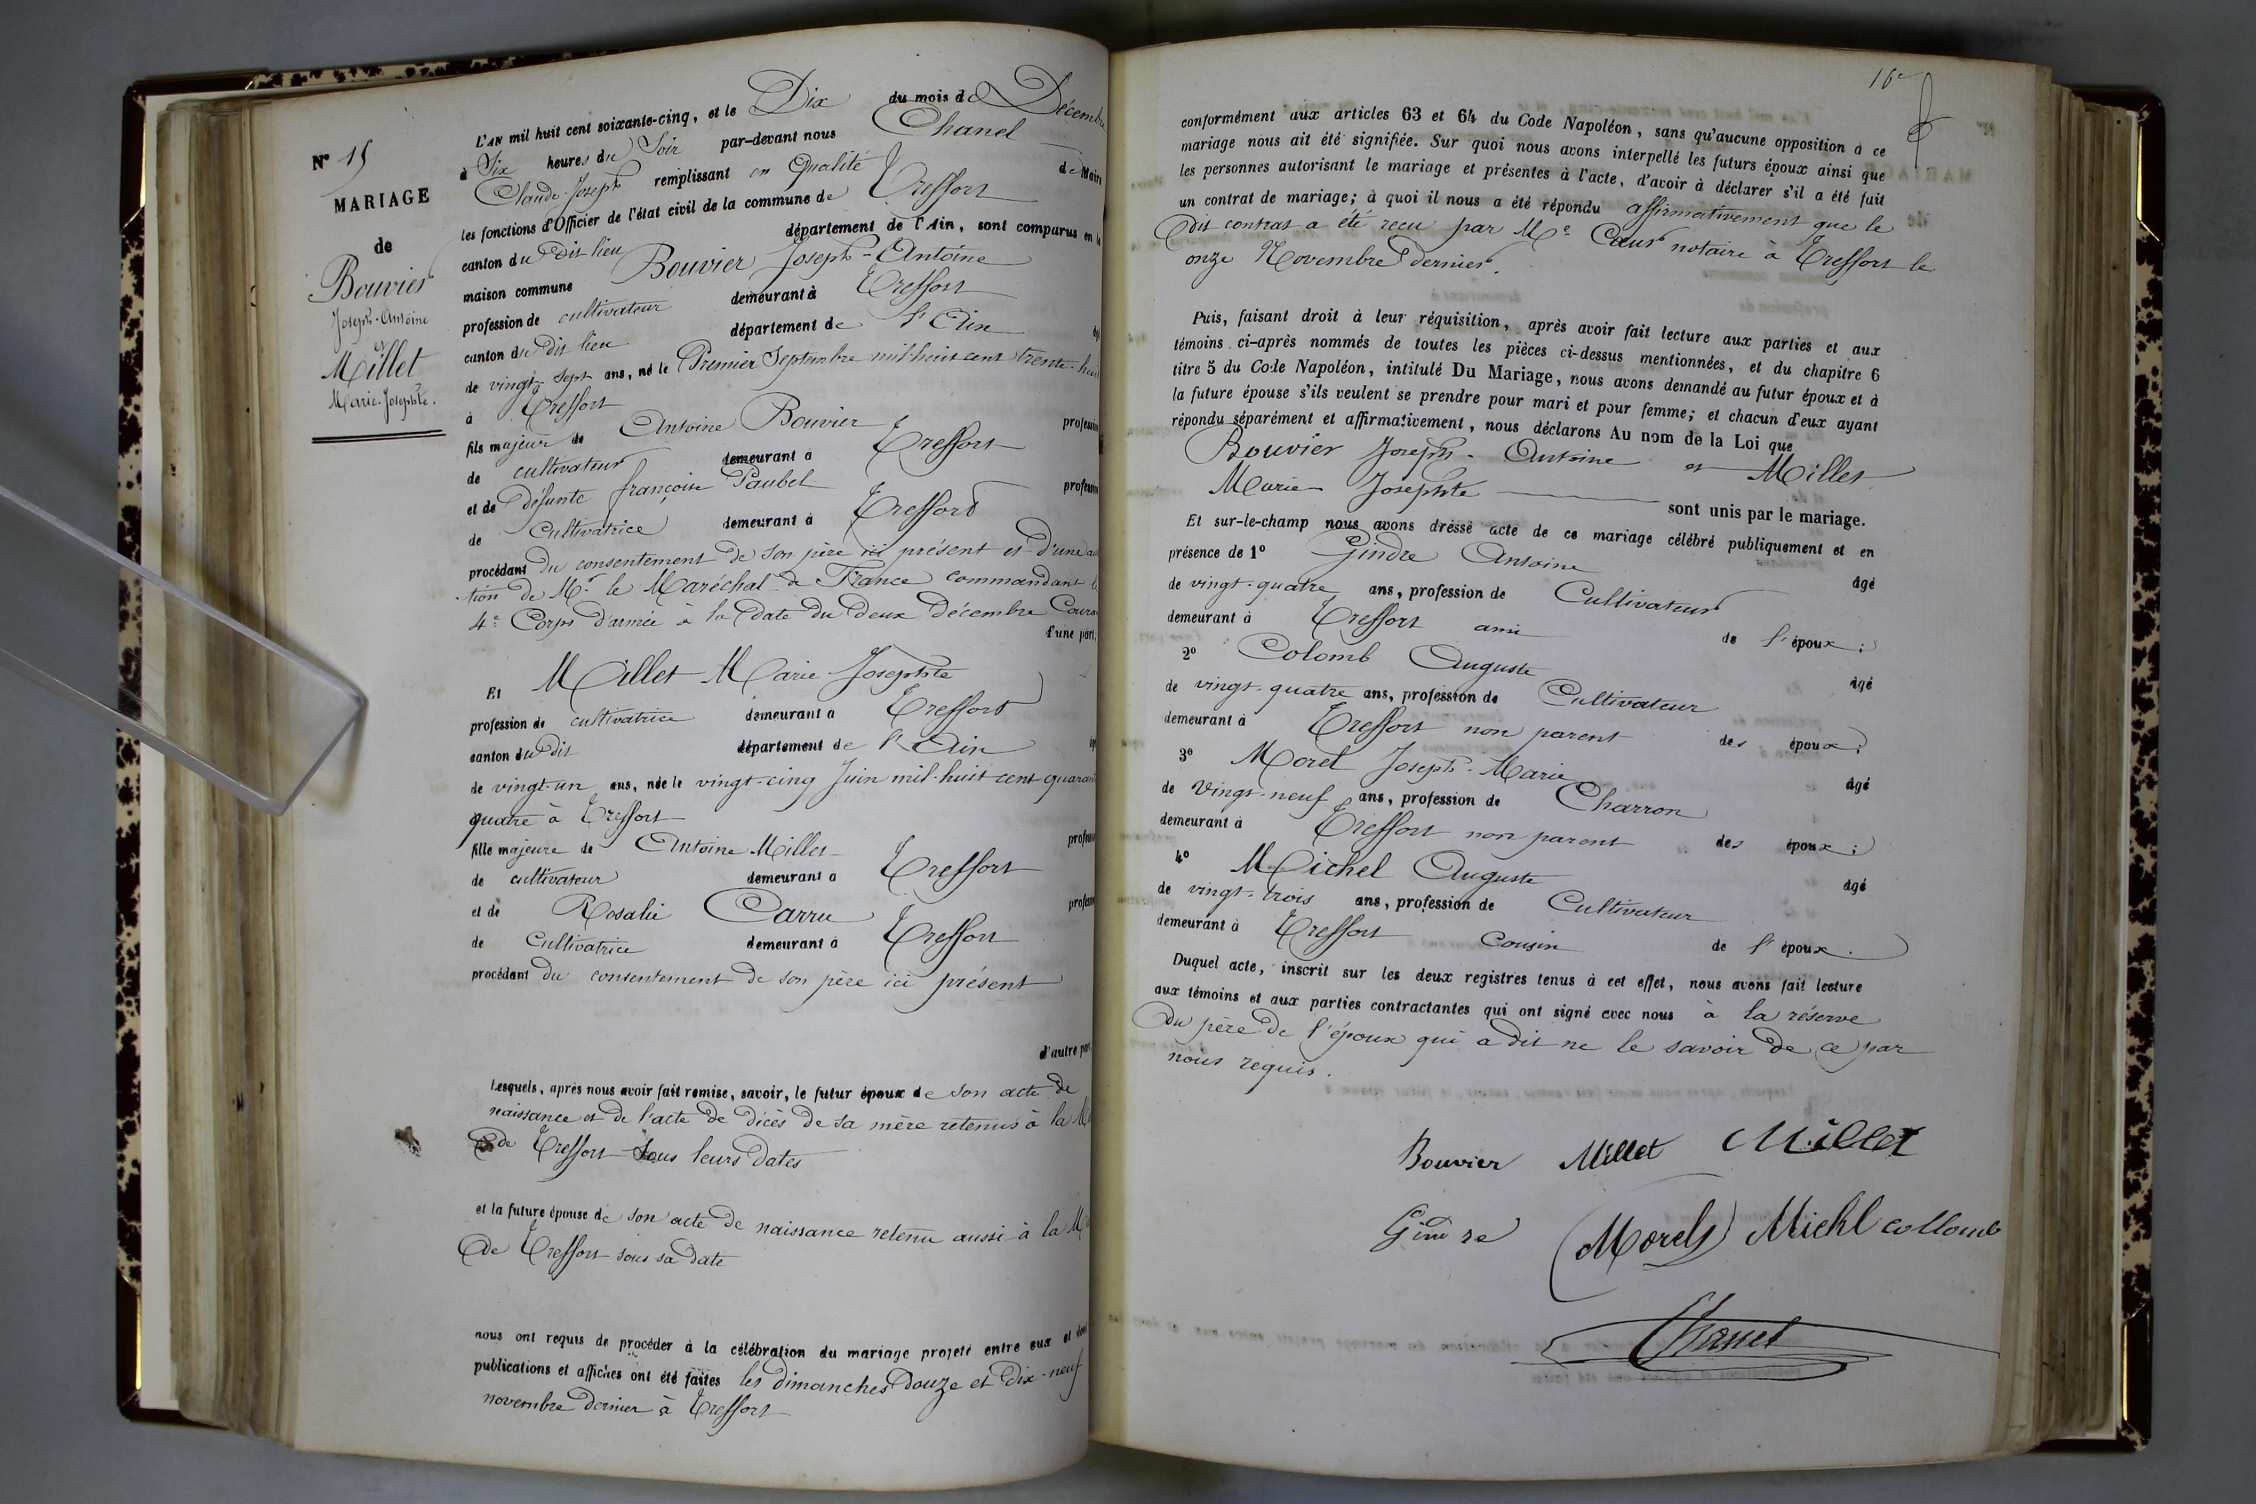 N° 15
MARIAGE
de
Bouvier
Joseph-Antoine
et
Millet
Marie-Josephte.
L'AN mil huit cent soixante-cinq, et le Dix du mois de Décembre
à Six heures du Soir par-devant nous Chanel
Claude-Joseph remplissant en Qualité de Maire
les fonctions d'Officier de l'état civil de la commune de Treffort
canton du dit lieu département de l'Ain, sont comparus en la
maison commune Bouvier Joseph-Antoine
profession de cultivateur demeurant à Treffort
canton du dit lieu département de l'Ain
de vingt-sept ans, né le Premier Septembre mil huit cent trente-huit
à Treffort
fils majeur de Antoine Bouvier profession
de cultivateur demeurant à Treffort
et de Défunte françoise Paubel profession
de Cultivatrice demeurant à Treffort
procédant du consentement de son père ici présent et d'une
tion de Mr le Maréchal de France commandant le
4e Corps d'armée à la date du deux décembre
d'une part,
Et Millet Marie Josephte
profession de cultivatrice demeurant à Treffort
canton du dit département de l'Ain
de vingt-un ans, née le vingt-cinq Juin mil-huit cent quarante
quatre à Treffort
fille majeure de Antoine Millet profession
de cultivateur demeurant à Treffort
et de Rosalie Carru profession
de Cultivatrice demeurant à Treffort
procédant du consentement de son père ici présent
d'autre part
Lesquels, après nous avoir fait remise, savoir, le futur époux de son acte de
naissance et de l'acte de décès de sa mère retenus à la
de Treffort sous leurs dates
et la future épouse de son acte de naissance retenu aussi à la
de Treffort sous sa date
nous ont requis de procéder à la célébration du mariage projeté entre eux et dont
publications et affiches ont été faites les dimanches douze et dix-neuf
novembre dernier à Treffort
16e
conformément aux articles 63 et 64 du Code Napoléon, sans qu'aucune opposition à ce
mariage nous ait été signifiée. Sur quoi nous avons interpellé les futurs époux ainsi que
les personnes autorisant le mariage et présentes à l'acte, d'avoir à déclarer s'il a été fait
un contrat de mariage; à quoi il nous a été répondu affirmativement que le
dit contrat a été reçu par Me notaire à Treffort le
onze Novembre dernier.
Puis, faisant droit à leur réquisition, après avoir fait lecture aux parties et aux
témoins ci-après nommés de toutes les pièces ci-dessus mentionnées, et du chapitre 6
titre 5 du Code Napoléon, intitulé Du Mariage, nous avons demandé au futur époux et à
la future épouse s'ils veulent se prendre pour mari et pour femme; et chacun d'eux ayant
répondu séparément et affirmativement, nous déclarons Au nom de la Loi que
Bouvier Joseph-Antoine et Millet
Marie Josephte sont unis par le mariage.
Et sur-le-champ nous avons dressé acte de ce mariage célébré publiquement et en
présence de 1° Gindre Antoine âgé
de vingt-quatre ans, profession de Cultivateur
demeurant à Treffort ami de l'époux;
2° Colomb Auguste âgé
de vingt-quatre ans, profession de Cultivateur
demeurant à Treffort non parent des époux;
3° Morel Joseph-Marie âgé
de Vingt-neuf ans, profession de Charron
demeurant à Treffort non parent des époux;
4° Michel Auguste âgé
de vingt-trois ans, profession de Cultivateur
demeurant à Treffort cousin de l'époux.
Duquel acte, inscrit sur les deux registres tenus à cet effet, nous avons fait lecture
aux témoins et aux parties contractantes qui ont signé avec nous à la réserve
du père de l'époux qui a dit ne le savoir de ce par
nous requis.
Bouvier Millet Millet
Gindre Morel Michl collomb
Chanel